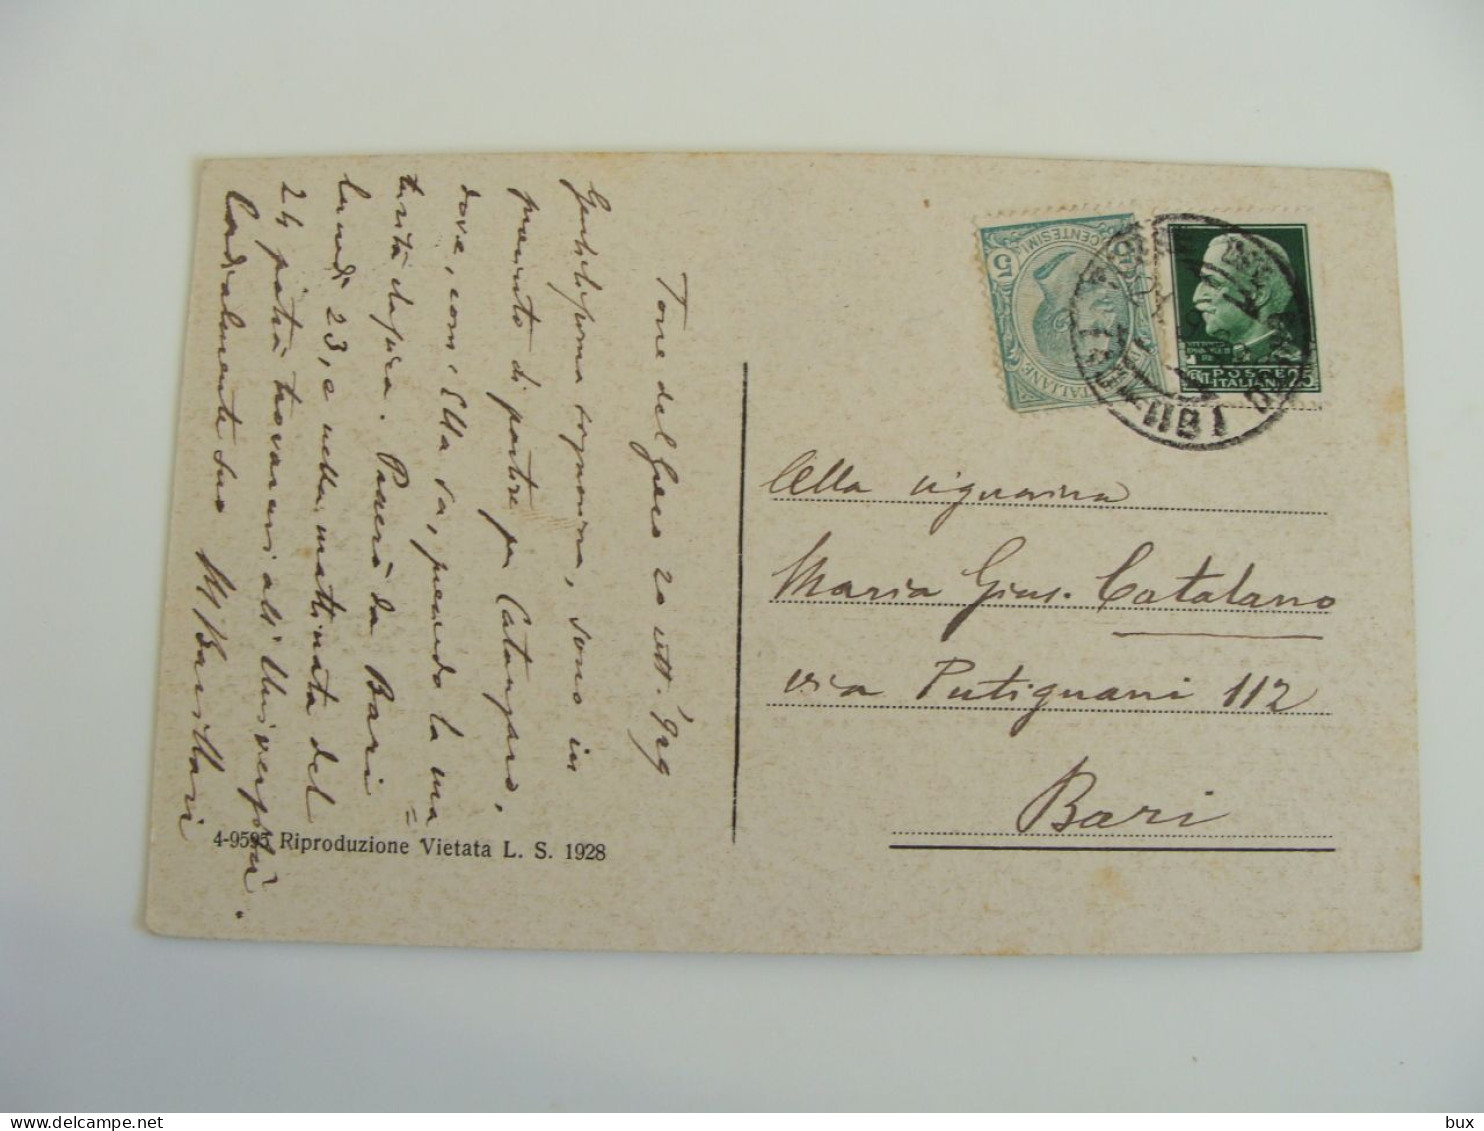 Torre del Greco 20 sett. 929
Gentilissima signorina, sono in
procinto di partire per Catanzaro,
dove, com'Ella sa, prendo la ma=
turità classica. Passerò da Bari
lunedì 23, e nella mattinata del
24 potrà trovarmi all'Università.
Cordialmente suo
4-9595 Riproduzione Vietata L. S. 1928
CENTESIMI
5
POSTE
ITALIANE
CENT. 25
Alla signorina
Maria Gius. Catalano
via Putignani 112
Bari
bux